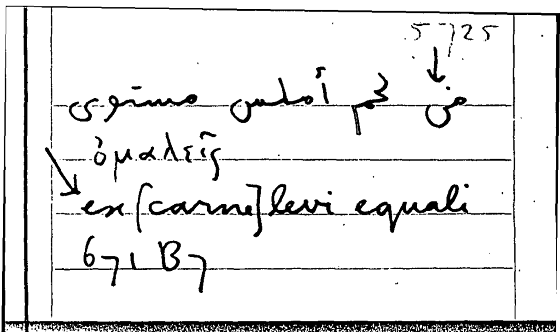 5725
من لحم أملس مستوى
ὁμαλεῖς
ex [carne] levi equali
671 B7